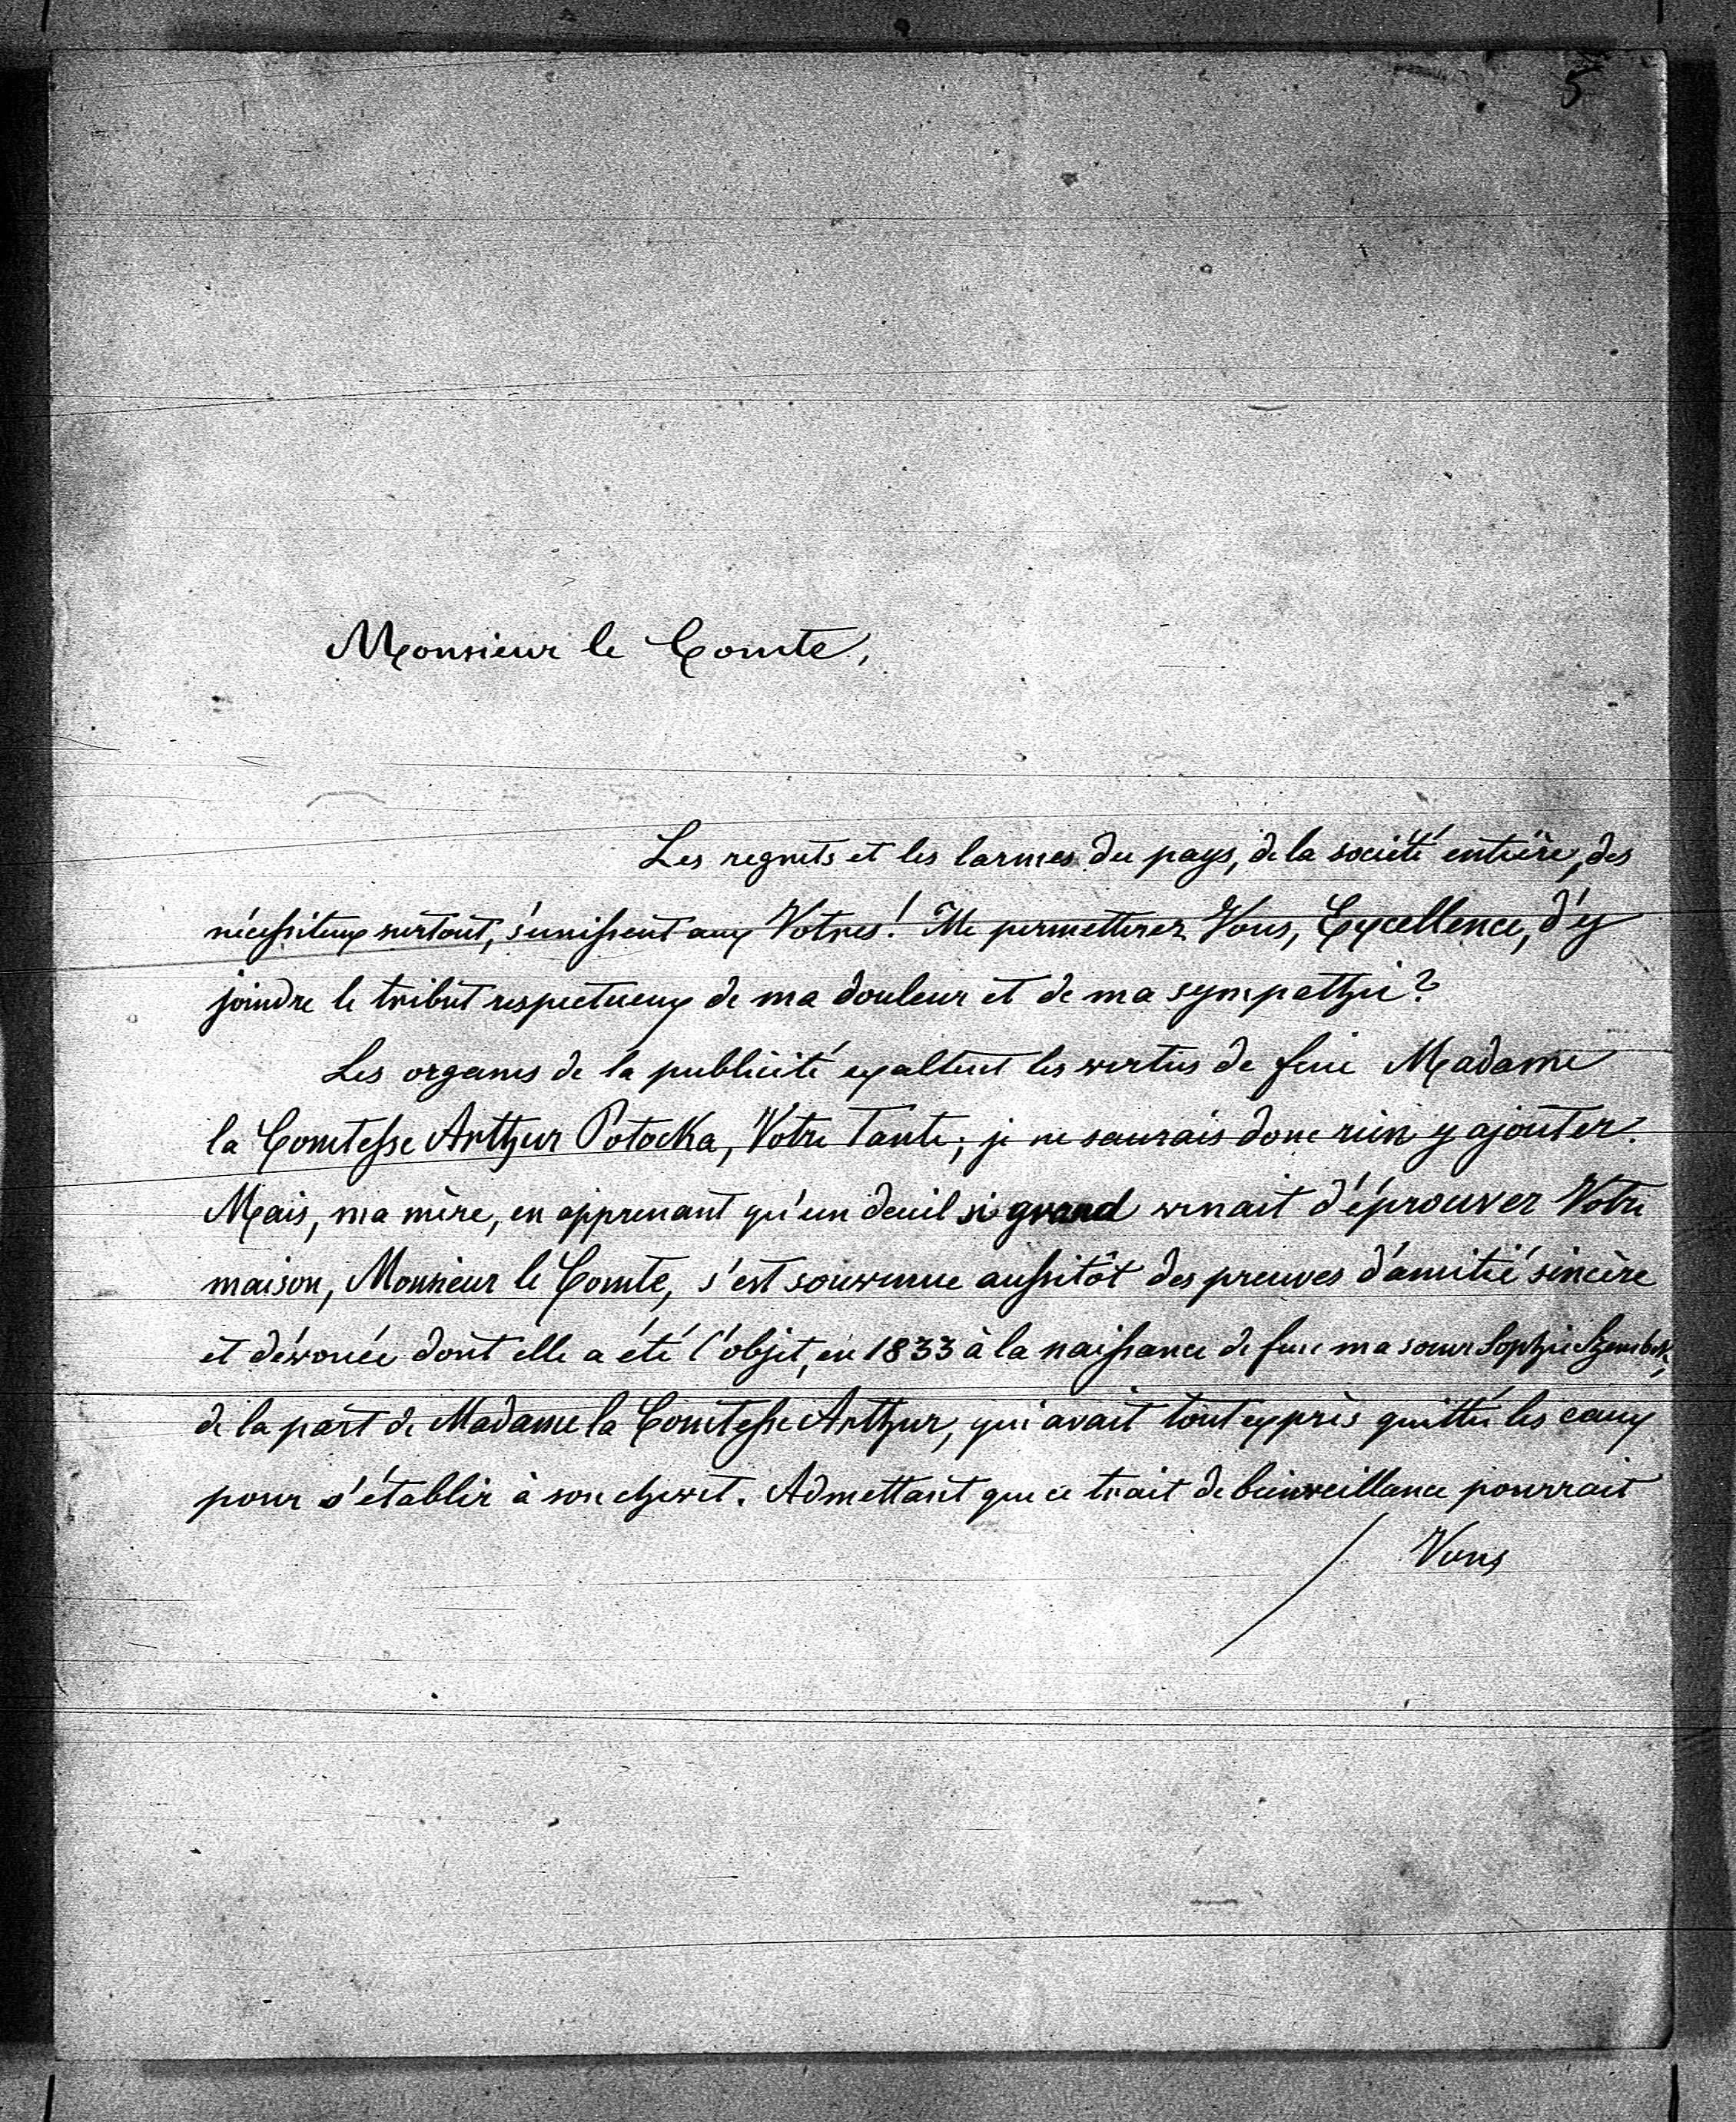 5
Monsieur le Comte,
Les regrets et les larmes du pays, de la société entière, des
nécessiteux surtout, s'unissent aux Votres! Me permettrez Vous, Excellence, d'y
joindre le tribut respectueux de ma douleur et de ma sympathie?
Les organes de la publicité exaltent les vertus de feue Madame
la Comtesse Arthur Potocka, Votre Tante; je ne saurais donc rien y ajouter.
Mais, ma mère, en apprenant qu'un deuil si grand venait d'éprouver Votre
maison, Monsieur le Comte, s'est souvenue aussitôt des preuves d'amitié sincère
et dévouée dont elle a été l'objet, en 1833 à la naissance de feue ma soeur Sophie Szembek,
de la part de Madame la Comtesse Arthur, qui avait tout exprès quitté les eaux
pour s'établir à son chevet. Admettant que ce trait de bienveillance pourrait
Vous